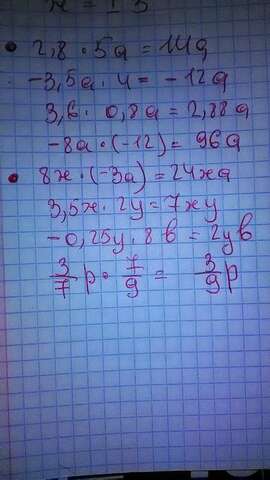 • 2,8 · 5a = 14a
-3,5a · 4 = -12a
3,6 · 0,8a = 2,88a
-8a · (-12) = 96a
• 8x · (-3a) = 24xa
3,5x · 2y = 7xy
-0,25y · 8b = 2yb
3/7 p · 7/9 = 3/9 p